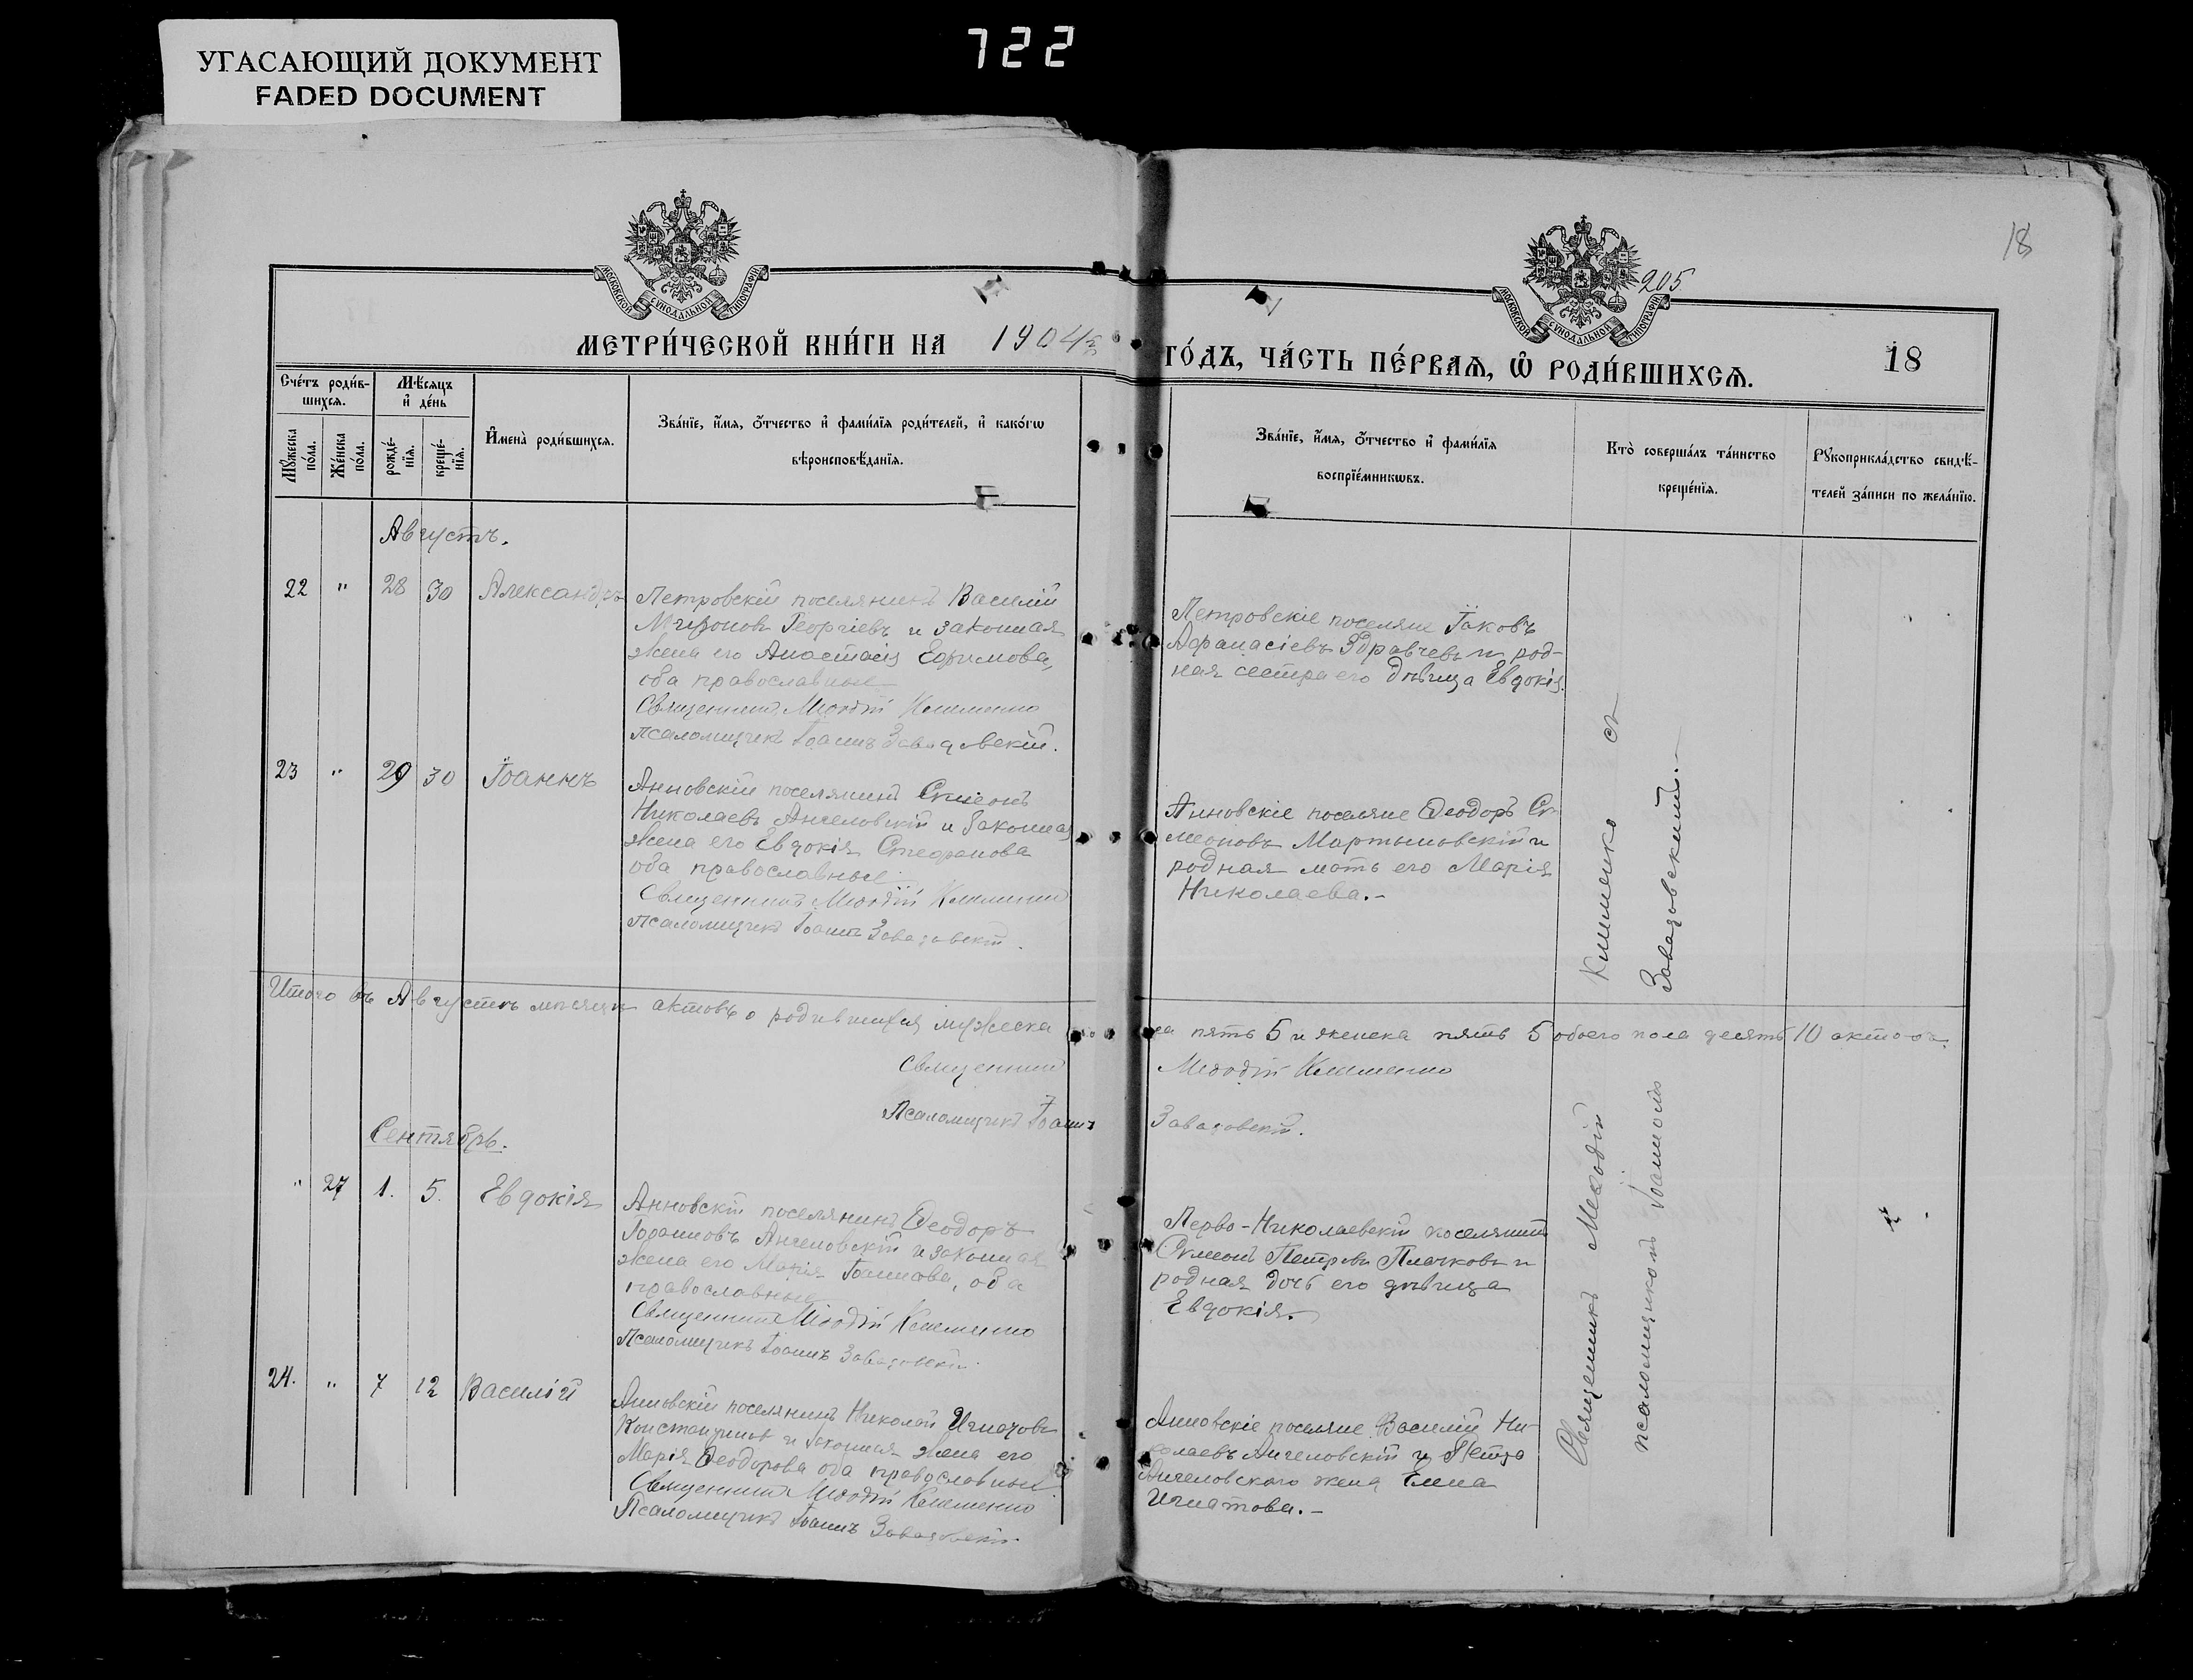 УГАСАЮЩИЙ ДОКУМЕНТ
FADED DOCUMENT
722
18
205
МОСКОВСКОЙ СѴНОДАЛЬНОЙ ТИПОГРАФІИ
МОСКОВСКОЙ СѴНОДАЛЬНОЙ ТИПОГРАФІИ
МЕТРИ́ЧЕСКОЙ КНИ́ГИ НА 1904 г.
ГО́ДЪ, ЧА́СТЬ ПЕ́РВАѦ, Ѡ҆ РОДИ́ВШИХСѦ.
18
Сче́тъ роди́в-
шихсѧ.
Мѣ́сяцъ
и҆ де́нь
Мꙋ́жеска
по́ла.
Же́нска
по́ла.
рожде́-
нїѧ.
креще́-
нїѧ.
И҆мена̀ роди́вшихсѧ.
Зва́нїе, и҆́мѧ, ѻ҆́тчество и҆ фами́лїѧ роди́телей, и҆ како́гѡ
вѣроисповѣ́данїѧ.
Зва́нїе, и҆́мѧ, ѻ҆́тчество и҆ фами́лїѧ
воспрїе́мникѡвъ.
Кто̀ соверша́лъ та́инство
креще́нїѧ.
Рꙋкоприкла́дство свидѣ́-
телей за́писи по жела́нїю.
Августъ.
22 " 28 30 Александръ
Петровскій поселянинъ Василій
Миронов Георгіевъ и законная
жена его Анастасія Ефимова,
оба православные
Священникъ Меѳодій Клименко
Псаломщикъ Іоаннъ Завадовскій.
Петровскіе поселяне Іаковъ
Афанасіевъ Здравчевъ и род-
ная сестра его дѣвица Евдокія.
23 " 29 30 Іоаннъ
Анновскій поселянинъ Симеонъ
Николаевъ Ангеловскій и законная
жена его Евдокія Стефанова
оба православные
Священникъ Меѳодій Клименко
Псаломщикъ Іоаннъ Завадовскій.
Анновскіе поселяне Ѳеодоръ Си-
меоновъ Мартыновскій и
родная мать его Марія
Николаева.-
Итого въ Августѣ мѣсяцѣ актовъ о родившихся мужеска
пять 5 и женска пять 5 обоего пола десять 10 актовъ.
Священникъ Меѳодій Клименко
Псаломщикъ Іоаннъ Завадовскій.
Сентябрь.
" 27 1. 5. Евдокія
Анновскій поселянинъ Ѳеодоръ
Іоанновъ Ангеловскій и законная
жена его Марія Іоаннова, оба
православные
Священникъ Меѳодій Клименко
Псаломщикъ Іоаннъ Завадовскій.
Перво-Николаевскій поселянинъ
Симеонъ Петровъ Плачковъ и
родная дочь его дѣвица
Евдокія.
24. " 7 12 Василій
Анновскій поселянинъ Николай Игнатовъ
Константинов и законная жена его
Марія Ѳеодорова оба православные
Священникъ Меѳодій Клименко
Псаломщикъ Іоаннъ Завадовскій.
Анновскіе поселяне Василій Ни-
колаевъ Ангеловскій и Петра
Ангеловскаго жена Елена
Игнатова.-
Священникъ Меѳодій Клименко съ
псаломщикомъ Іоанномъ Завадовскимъ.-